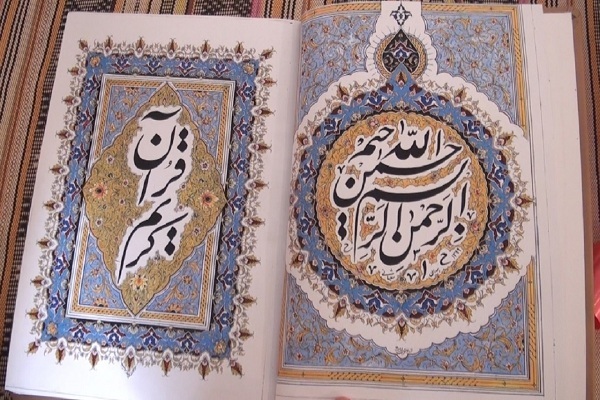 بسم الله الرحمن الرحیم
قرآن
کریم